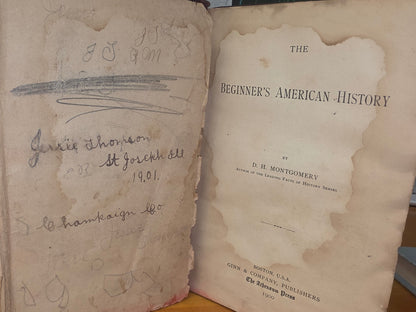 J S
J S G M
Jessie Thomson
St Joseph Ill
1901.
Champaign Co
THE
BEGINNER'S AMERICAN HISTORY
BY
D. H. MONTGOMERY
AUTHOR OF THE LEADING FACTS OF HISTORY SERIES
BOSTON, U.S.A.
GINN & COMPANY, PUBLISHERS
The Athenæum Press
1900